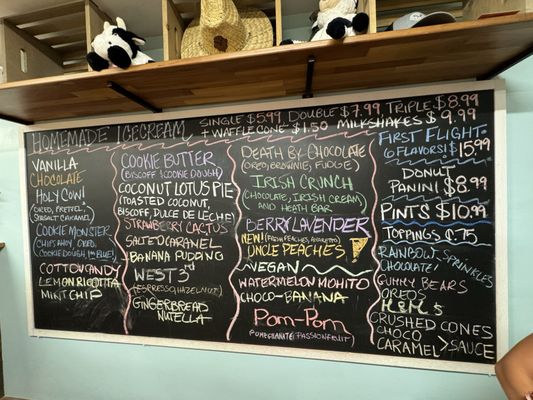 HOMEMADE ICECREAM
SINGLE $5.99, DOUBLE $7.99 TRIPLE $8.99
+ WAFFLE CONE $1.50 MILKSHAKES $9.99
VANILLA
CHOCOLATE
HOLY COW!
(OREO, PRETZEL,
SEASALT CARAMEL)
COOKIE MONSTER
(CHIPS AHOY, OREO,
COOKIE DOUGH, I'M BLUE)
COTTON CANDY
LEMON RICOTTA
MINT CHIP
COOKIE BUTTER
(BISCOFF (COOKIE DOUGH)
COCONUT LOTUS PIE
(TOASTED COCONUT,
BISCOFF, DULCE DE LECHE)
STRAWBERRY CACTUS
SALTED CARAMEL
BANANA PUDDING
WEST 3RD
(ESPRESSO, HAZELNUT)
GINGERBREAD
NUTELLA
DEATH BY CHOCOLATE
(OREO, BROWNIE, FUDGE)
IRISH CRUNCH
(CHOCOLATE, IRISH CREAM,
AND HEATH BAR
BERRY LAVENDER
NEW! (FRESH PEACHES, AMARETTO)
UNCLE PEACHES
VEGAN
WATERMELON MOHITO
CHOCO-BANANA
POM-POM
(POMEGRANATE, PASSIONFRUIT)
FIRST FLIGHT
6 FLAVORS! $15.99
DONUT
PANINI $8.99
PINTS $10.99
TOPPINGS $.75
RAINBOW, SPRINKLES
CHOCOLATE
GUMMY BEARS
OREOS
M&M'S
CRUSHED CONES
CHOCO
CARAMEL > SAUCE